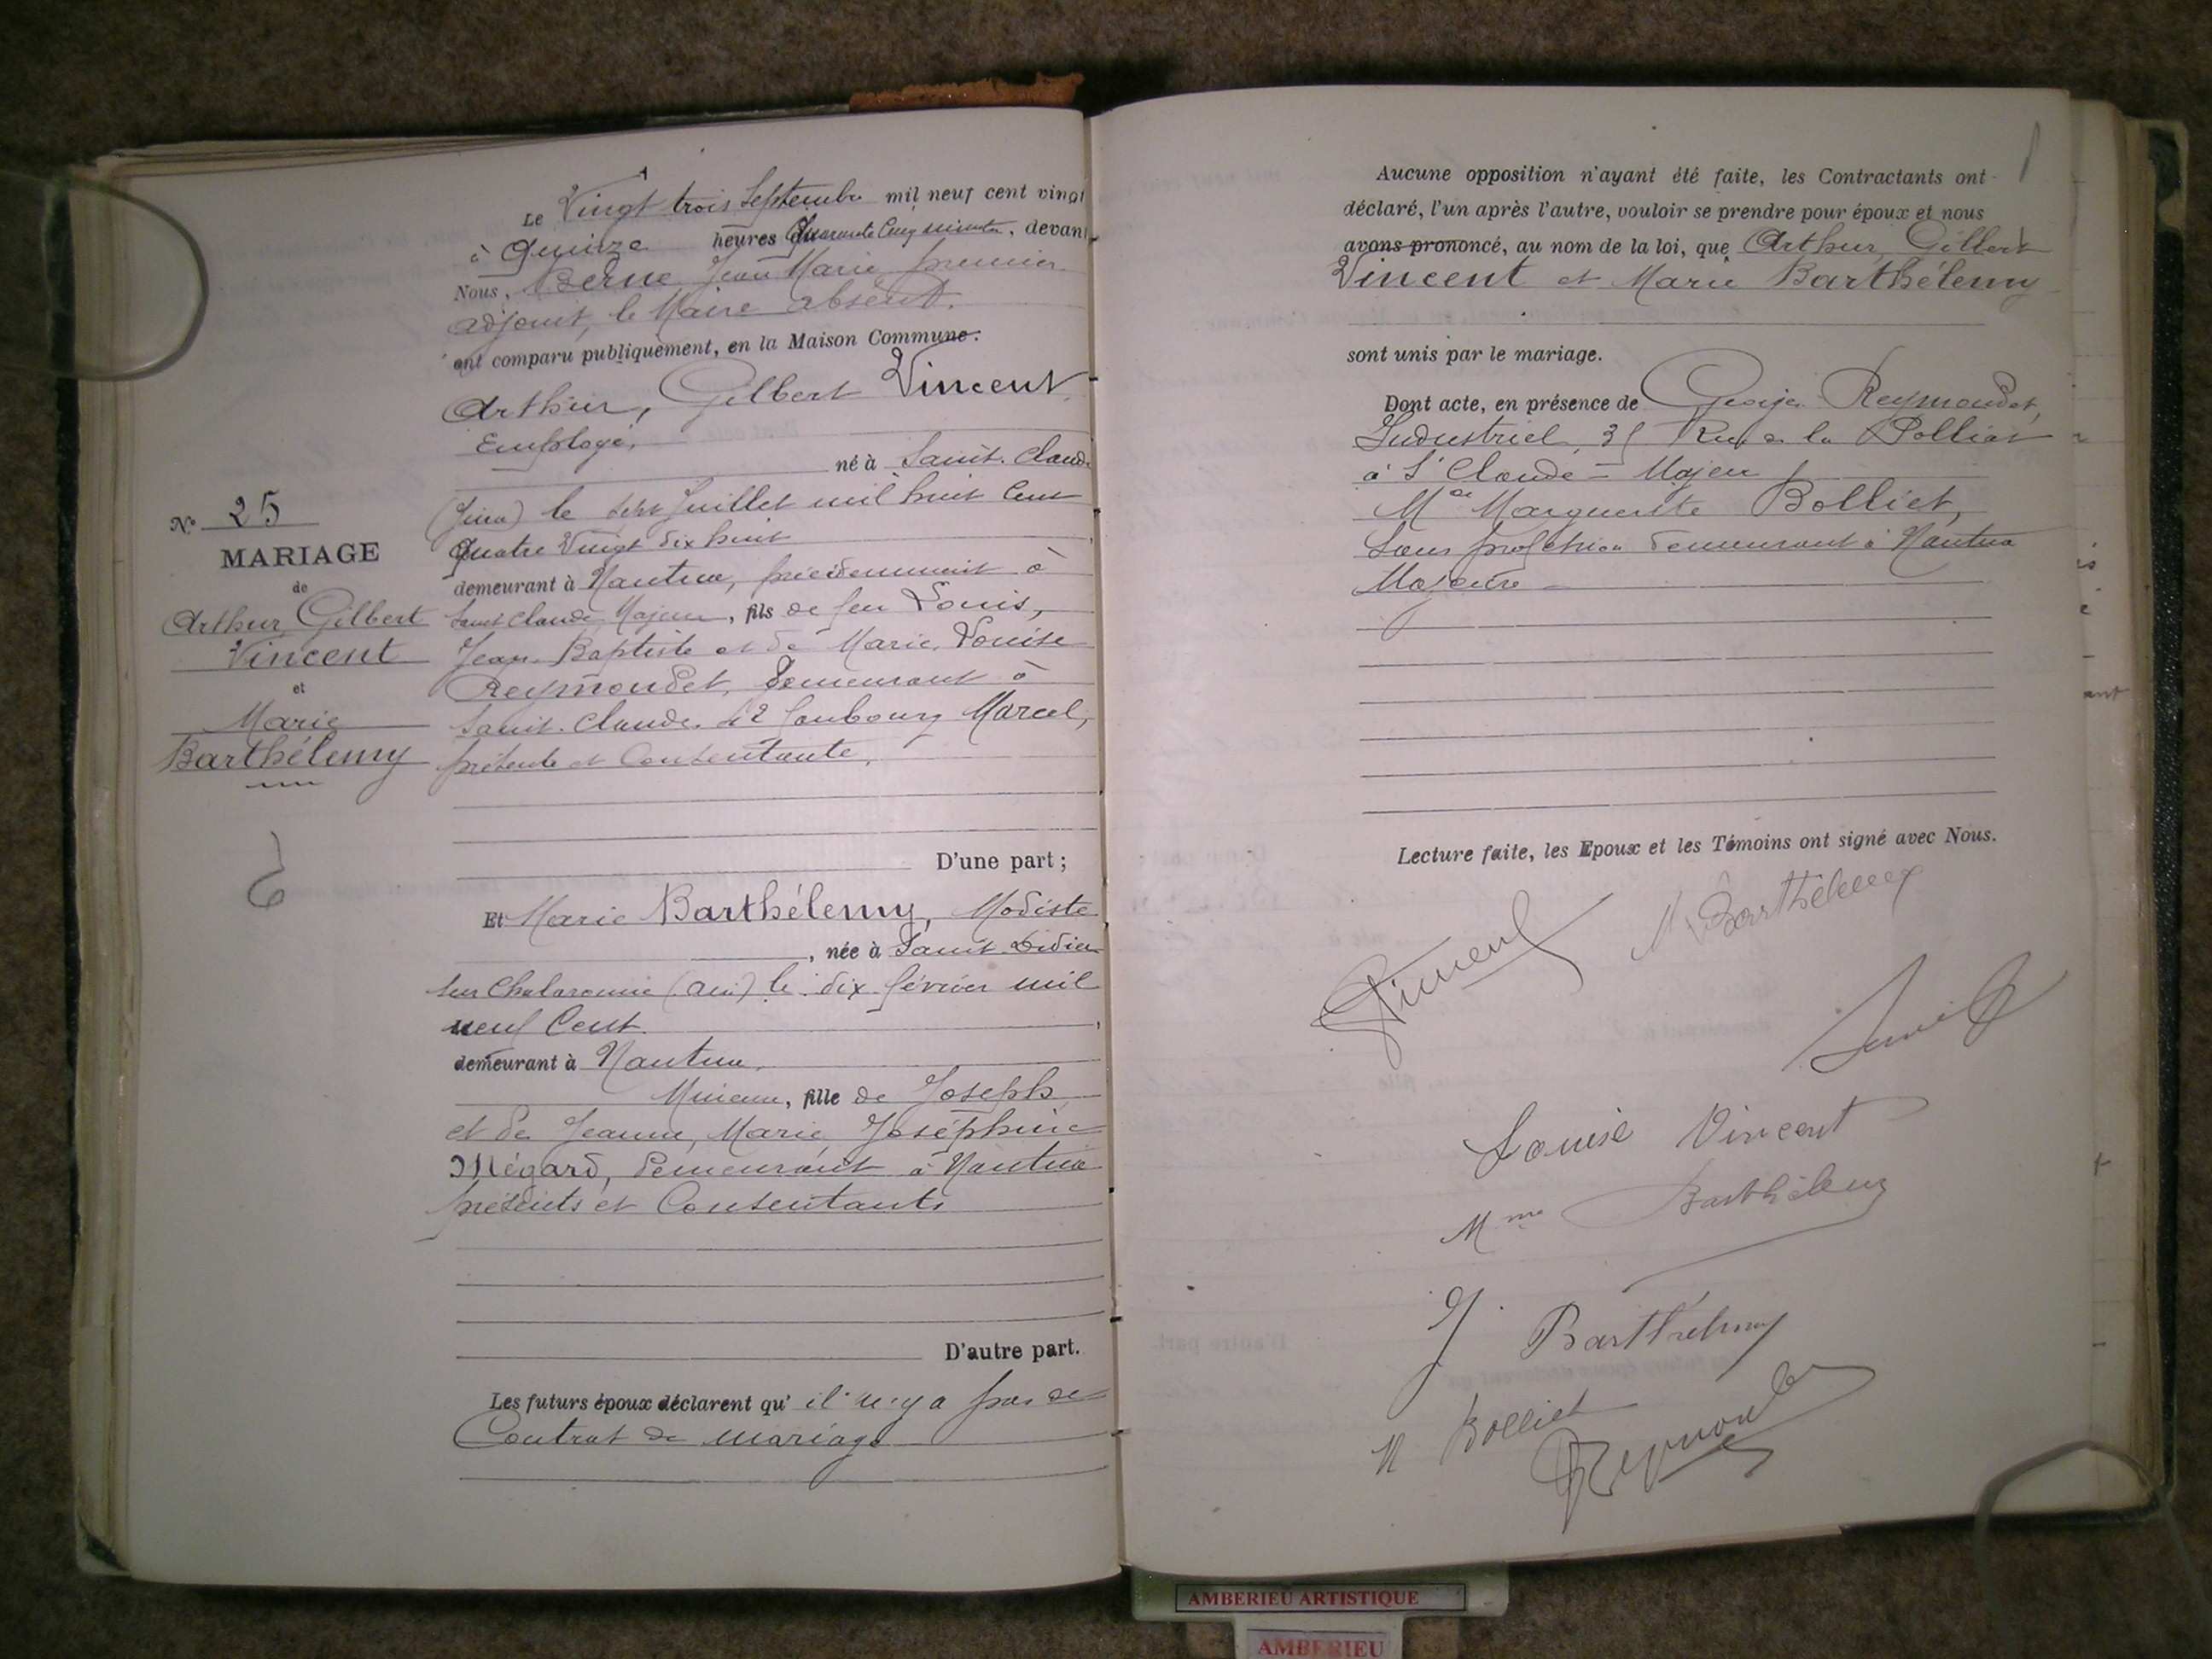 Le Vingt trois Septembre mil neuf cent vingt
à quinze heures Quarante Cinq minutes, devant
Nous, Berne Jean Marie premier
adjoint, le Maire absent.
ont comparu publiquement, en la Maison Commune:
Arthur, Gilbert Vincent
Employé,
né à Saint-Claude
(Jura) le sept Juillet mil huit Cent
quatre Vingt dix huit
demeurant à Nantua, précédemment à
Saint Claude Majeur, fils de feu Louis,
Jean-Baptiste et de Marie, Louise
Reymondet, demeurant à
Saint-Claude 42 faubourg Marcel,
présente et Consentante,
D'une part;
N° 25
MARIAGE
de
Arthur, Gilbert
Vincent
et
Marie
Barthélemy
Et Marie Barthélemy, Modiste
, née à Saint-Didier
sur Chalaronne (Ain) le dix février mil
neuf Cent
demeurant à Nantua,
Mineure, fille de Joseph
et de Jeanne, Marie, Joséphine
Mégard, demeurant à Nantua
présents et Consentants
D'autre part.
Les futurs époux déclarent qu' il n'y a pas de
Contrat de mariage
Aucune opposition n'ayant été faite, les Contractants ont
déclaré, l'un après l'autre, vouloir se prendre pour époux et nous
avons prononcé, au nom de la loi, que Arthur, Gilbert
Vincent et Marie Barthélemy
sont unis par le mariage.
Dont acte, en présence de Georges Reymondet,
Industriel, Rue de la
à St Claude - Majeur
Marguerite Bolliet,
Sans profession demeurant à Nantua
Majeure
Lecture faite, les Epoux et les Témoins ont signé avec Nous.
Vincent
M Barthélemy
Louise Vincent
Mme Barthélemy
J. Barthélemy
M Bolliet
Reymondet
AMBERIEU ARTISTIQUE
AMBERIEU